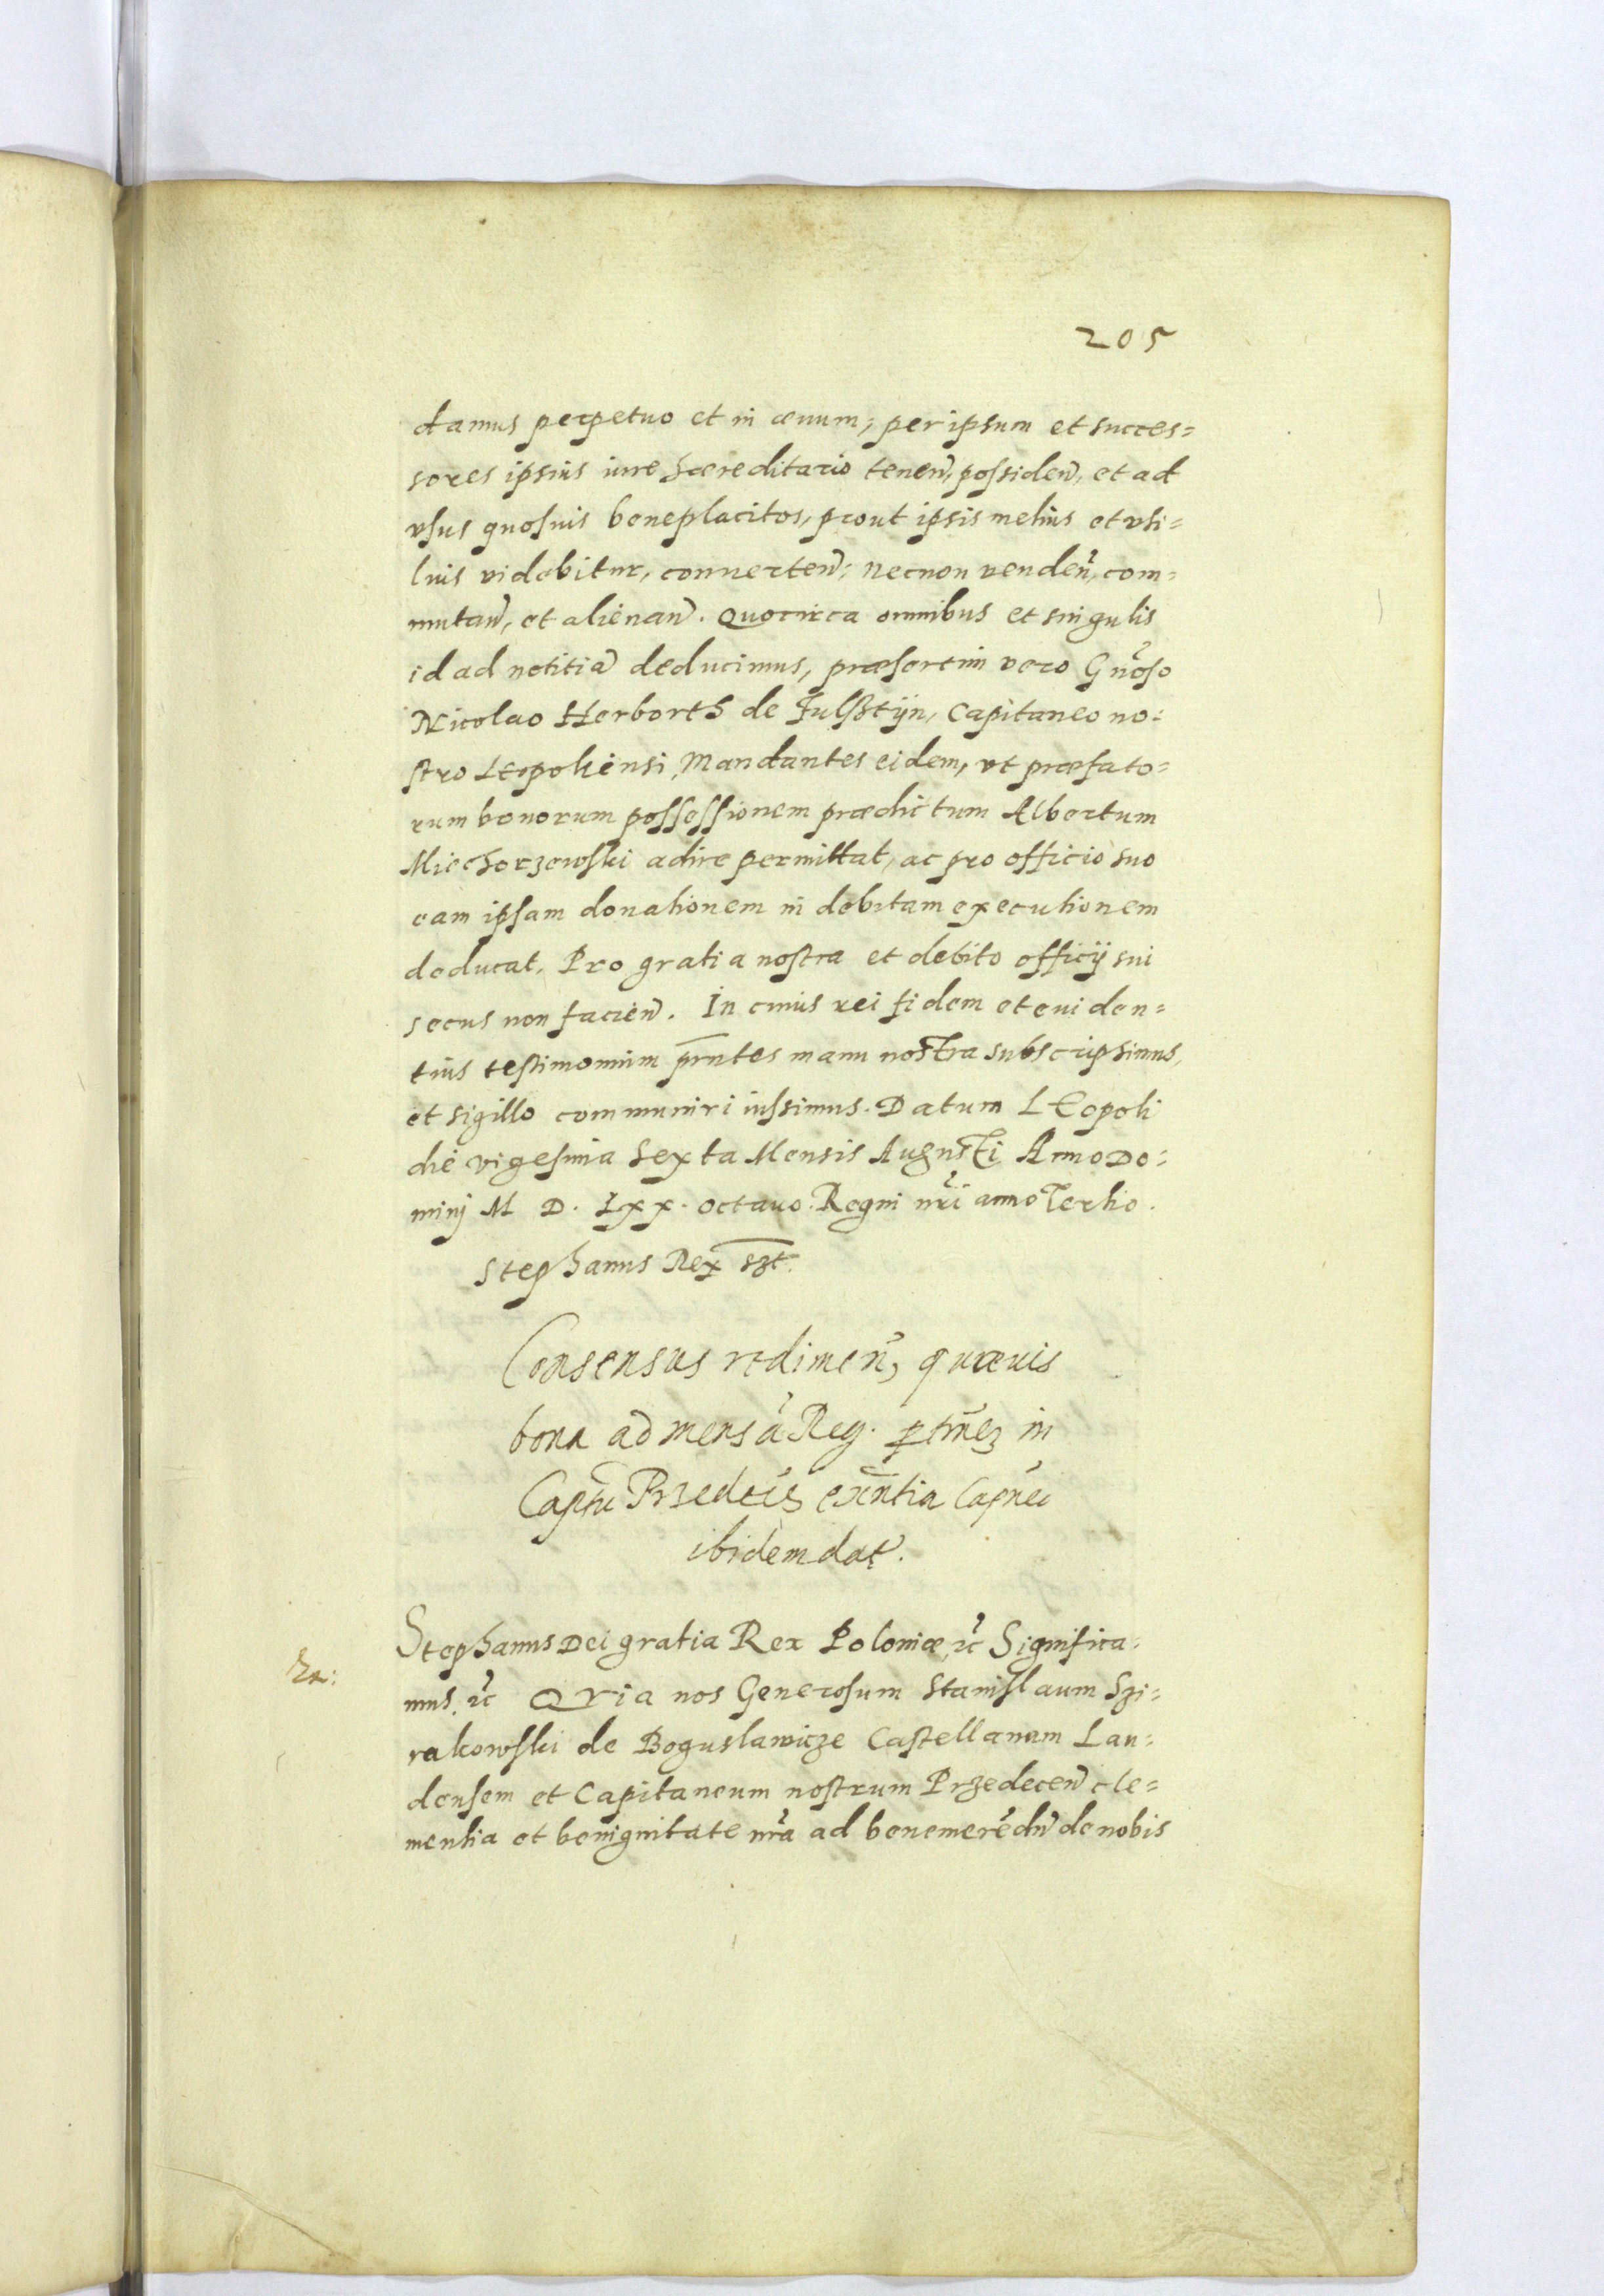 205
damus perpetuo et in æuum, per ipsum et succes=
sores ipsius iure hæreditario tenen̄, possiden̄, et ad
vsus quosuis beneplacitos, prout ipsis melius et vti=
lius videbitur, conuerten̄; necnon venden̄, com=
mutan̄, et alienan̄. Quocirca omnibus et singulis
id ad notitiā deducimus, præsertim vero Gn̄oso
Nicolao Herborth de Fulsztijn, Capitaneo no=
stro Leopoliensi, Mandantes eidem, vt præfato=
rum bonorum possessionem prædictum Albertum
Miechorzewski adire permittat, ac pro officio suo
eam ipsam donationem in debitam executionem
deducat. Pro gratia nostra et debito officij sui
secus non facien̄. In cuius rei fidem et euiden=
tius testimonium p̄rntes manu nostra subscripsimus,
et sigillo communiri iussimus. Datum Leopoli
die vigesima Sexta Mensis Augusti Anno Do=
minj M D. Lxx. octauo. Regni nr̄i anno Tertio.
Stephanus Rex sst.
Consensus redimen̄, quæuis
bona ad mensā Reg. ptinēz in
Captu Przedecz exn̄tia Capneo
ibidem dat̄.
Stephanus Dei gratia Rex Poloniæ, ec̄ Significa=
mus. ec̄ Quia nos Generosum Stanislaum Szi=
rakowski de Boguslawicze Castellanum Lan=
densem et Capitaneum nostrum Przedecen̄ cle=
mentia et benignitate nr̄a ad benemerēdū de nobis